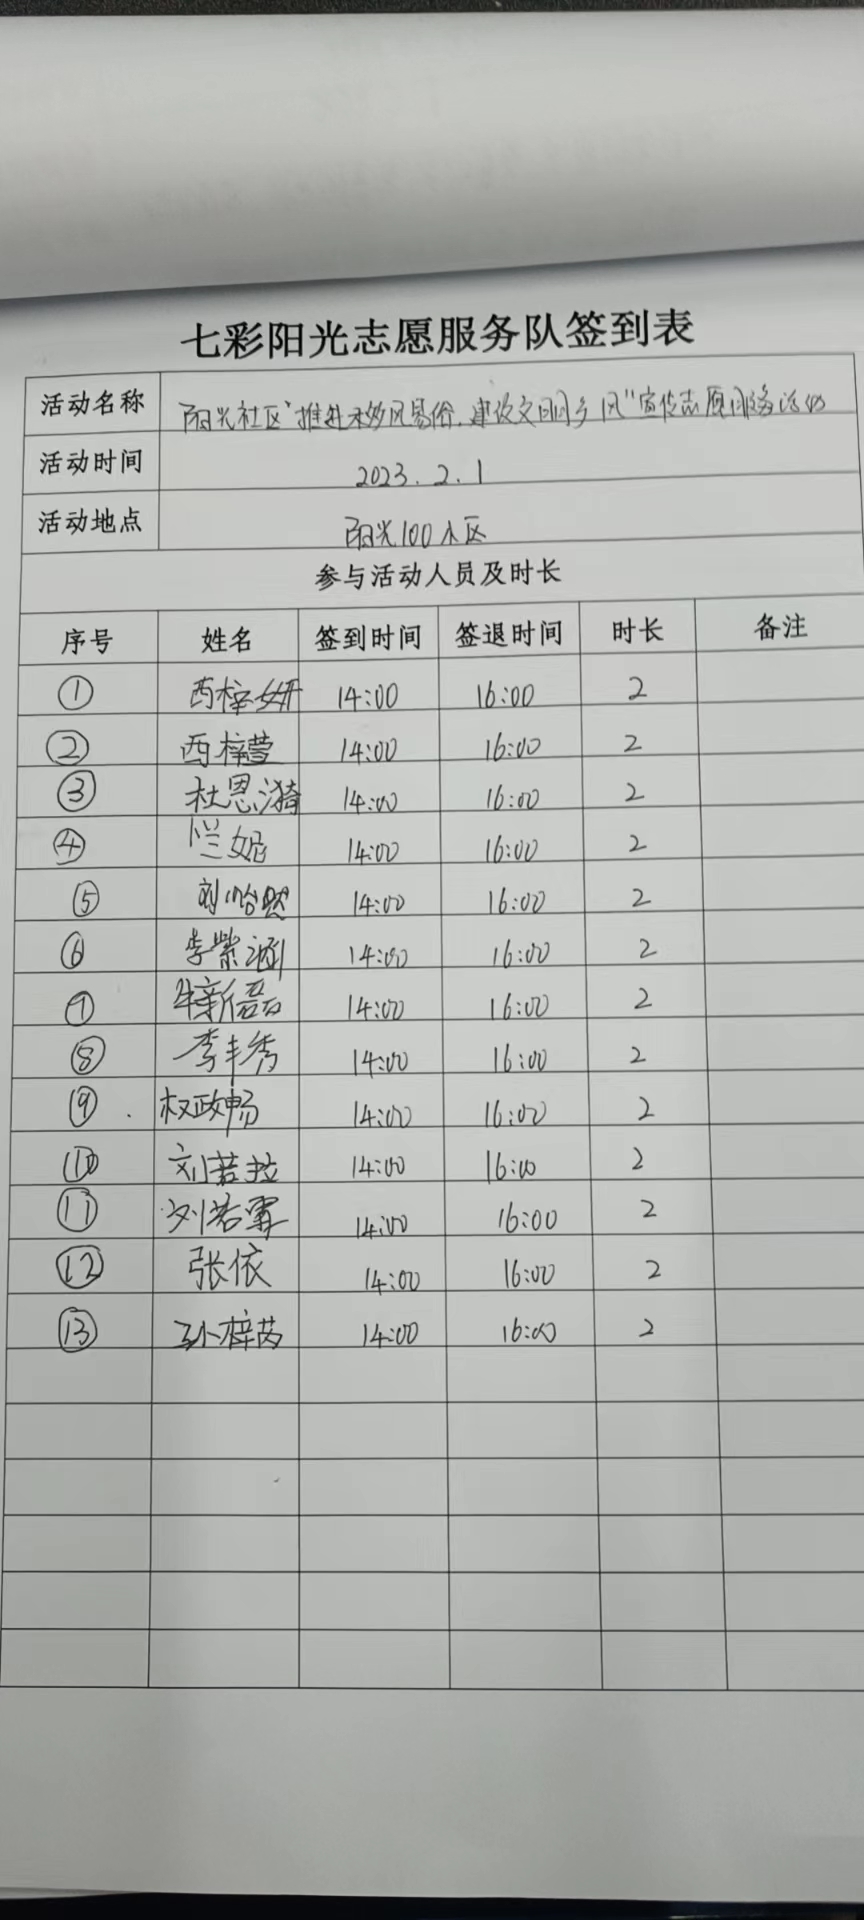 七彩阳光志愿服务队签到表
活动名称 阳光社区"推进移风易俗,建设文明乡风"宣传志愿服务活动
活动时间 2023.2.1
活动地点 阳光100小区
参与活动人员及时长
序号 姓名 签到时间 签退时间 时长 备注
① 西梓妍 14:00 16:00 2
② 西梓萱 14:00 16:00 2
③ 杜恩漪 14:00 16:00 2
④ 14:00 16:00 2
⑤ 14:00 16:00 2
⑥ 李紫涵 14:00 16:00 2
⑦ 14:00 16:00 2
⑧ 李丰秀 14:00 16:00 2
⑨ 权政畅 14:00 16:00 2
⑩ 14:00 16:00 2
⑪ 刘若霏 14:00 16:00 2
⑫ 张依 14:00 16:00 2
⑬ 孙梓芮 14:00 16:00 2